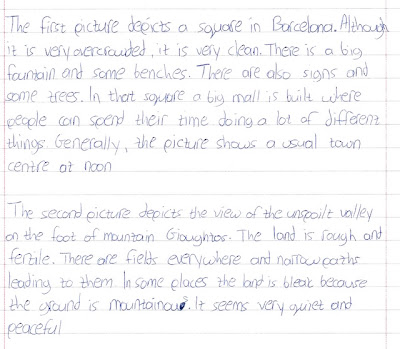 The first picture depicts a square in Barcelona. Although
it is very overcrowded, it is very clean. There is a big
fountain and some benches. There are also signs and
some trees. In that square a big mall is built where
people can spend their time doing a lot of different
things. Generally, the picture shows a usual town
centre at noon
The second picture depicts the view of the unspoilt valley
on the foot of mountain Giouhtas. The land is rough and
fertile. There are fields everywhere and narrow paths
leading to them. In some places the land is bleak because
the ground is mountainous. It seems very quiet and
peaceful